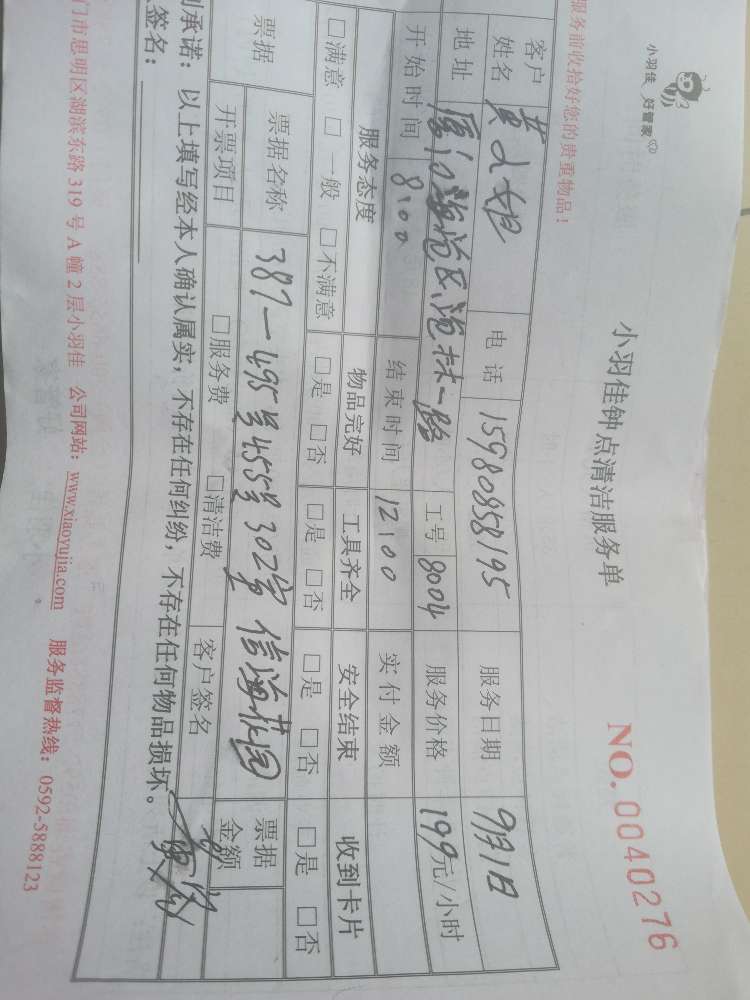 小羽佳 好管家
小羽佳钟点清洁服务单
NO. 0040276
服务前收拾好您的贵重物品！
客户姓名 黄小姐 电话 15980858195 服务日期 9月1日
地址 厦门海沧区沧林一路 工号 8004 服务价格 199元/小时
开始时间 8:00 结束时间 12:00 实付金额
服务态度 物品完好 工具齐全 安全结束 收到卡片
□满意 □一般 □不满意 □是 □否 □是 □否 □是 □否 □是 □否
387-495号455号302室 信海花园
票据 票据名称 票据金额
开票项目 □服务费 □清洁费 客户签名
承诺：以上填写经本人确认属实，不存在任何纠纷，不存在任何物品损坏。
签名：
门市思明区湖滨东路319号A幢2层小羽佳 公司网站：www.xiaoyujia.com 服务监督热线：0592-5888123